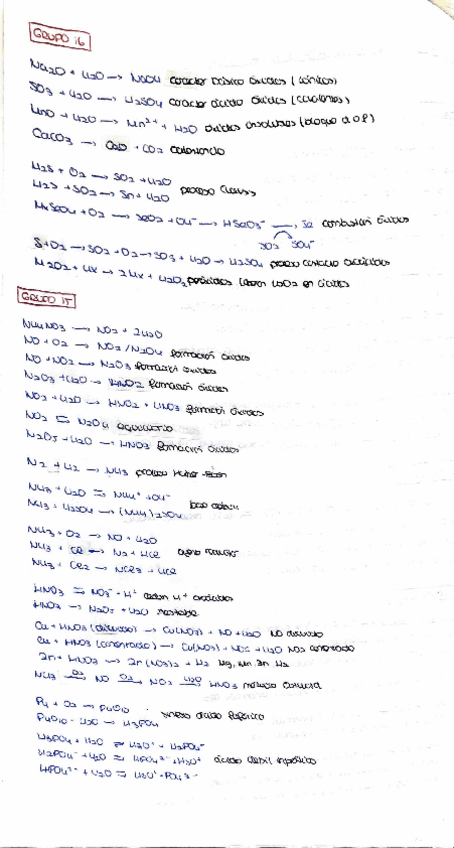 GRUPO 16
Na2O + H2O → NaOH caracter básico óxidos (iónicos)
SO3 + H2O → H2SO4 caracter ácido óxidos (covalentes)
MnO + H2O → Mn2+ + H2O óxidos insolubles (bloque d o p)
CaCO3 → CaO + CO2 calentando
H2S + O2 → SO2 + H2O
H2S + SO2 → Sn + H2O proceso Claus
+ O2 → SeO2 + OH- → HSeO3- → combustión
SO2 SO4-
S + O2 → SO2 + O2 → SO3 + H2O → H2SO4 proceso contacto
M2O2 + HX → 2MX + H2O2 peróxidos
GRUPO 15
NH4NO3 → NO2 + 2H2O
NO + O2 → NO2/N2O4 formación óxidos
NO + NO2 → N2O3 formación óxidos
N2O3 + H2O → HNO2 formación óxidos
NO2 + H2O → HNO2 + HNO3 formación óxidos
NO2 ⇌ N2O4 equilibrio
N2O5 + H2O → HNO3 formación óxidos
N2 + H2 → NH3 proceso Haber-Bosch
NH3 + H2O ⇌ NH4+ + OH-
NH3 + H2SO4 → (NH4)2SO4 base
NH3 + O2 → NO + H2O
NH3 + Cl2 → N2 + HCl agente reductor
NH3 + Cl2 → NCl3 + HCl
HNO3 ⇌ NO3- + H+ ceden H+
HNO3 → N2O5 + H2O
Cu + HNO3 (diluido) → Cu(NO3) + NO + H2O NO diluido
Cu + HNO3 (concentrado) → Cu(NO3) + NO2 + H2O NO2 concentrado
Zn + HNO3 → Zn(NO3)2 + H2 Mg, Mn, Zn H2
NH3 O2→ NO O2→ NO2 H2O→ HNO3 método Ostwald
P4 + O2 → P4O10
P4O10 + H2O → H3PO4 ácido fosfórico
H3PO4 + H2O ⇌ H3O+ + H2PO4-
H2PO4- + H2O ⇌ HPO42- + H3O+ ácido débil
HPO42- + H2O ⇌ H3O+ + PO43-